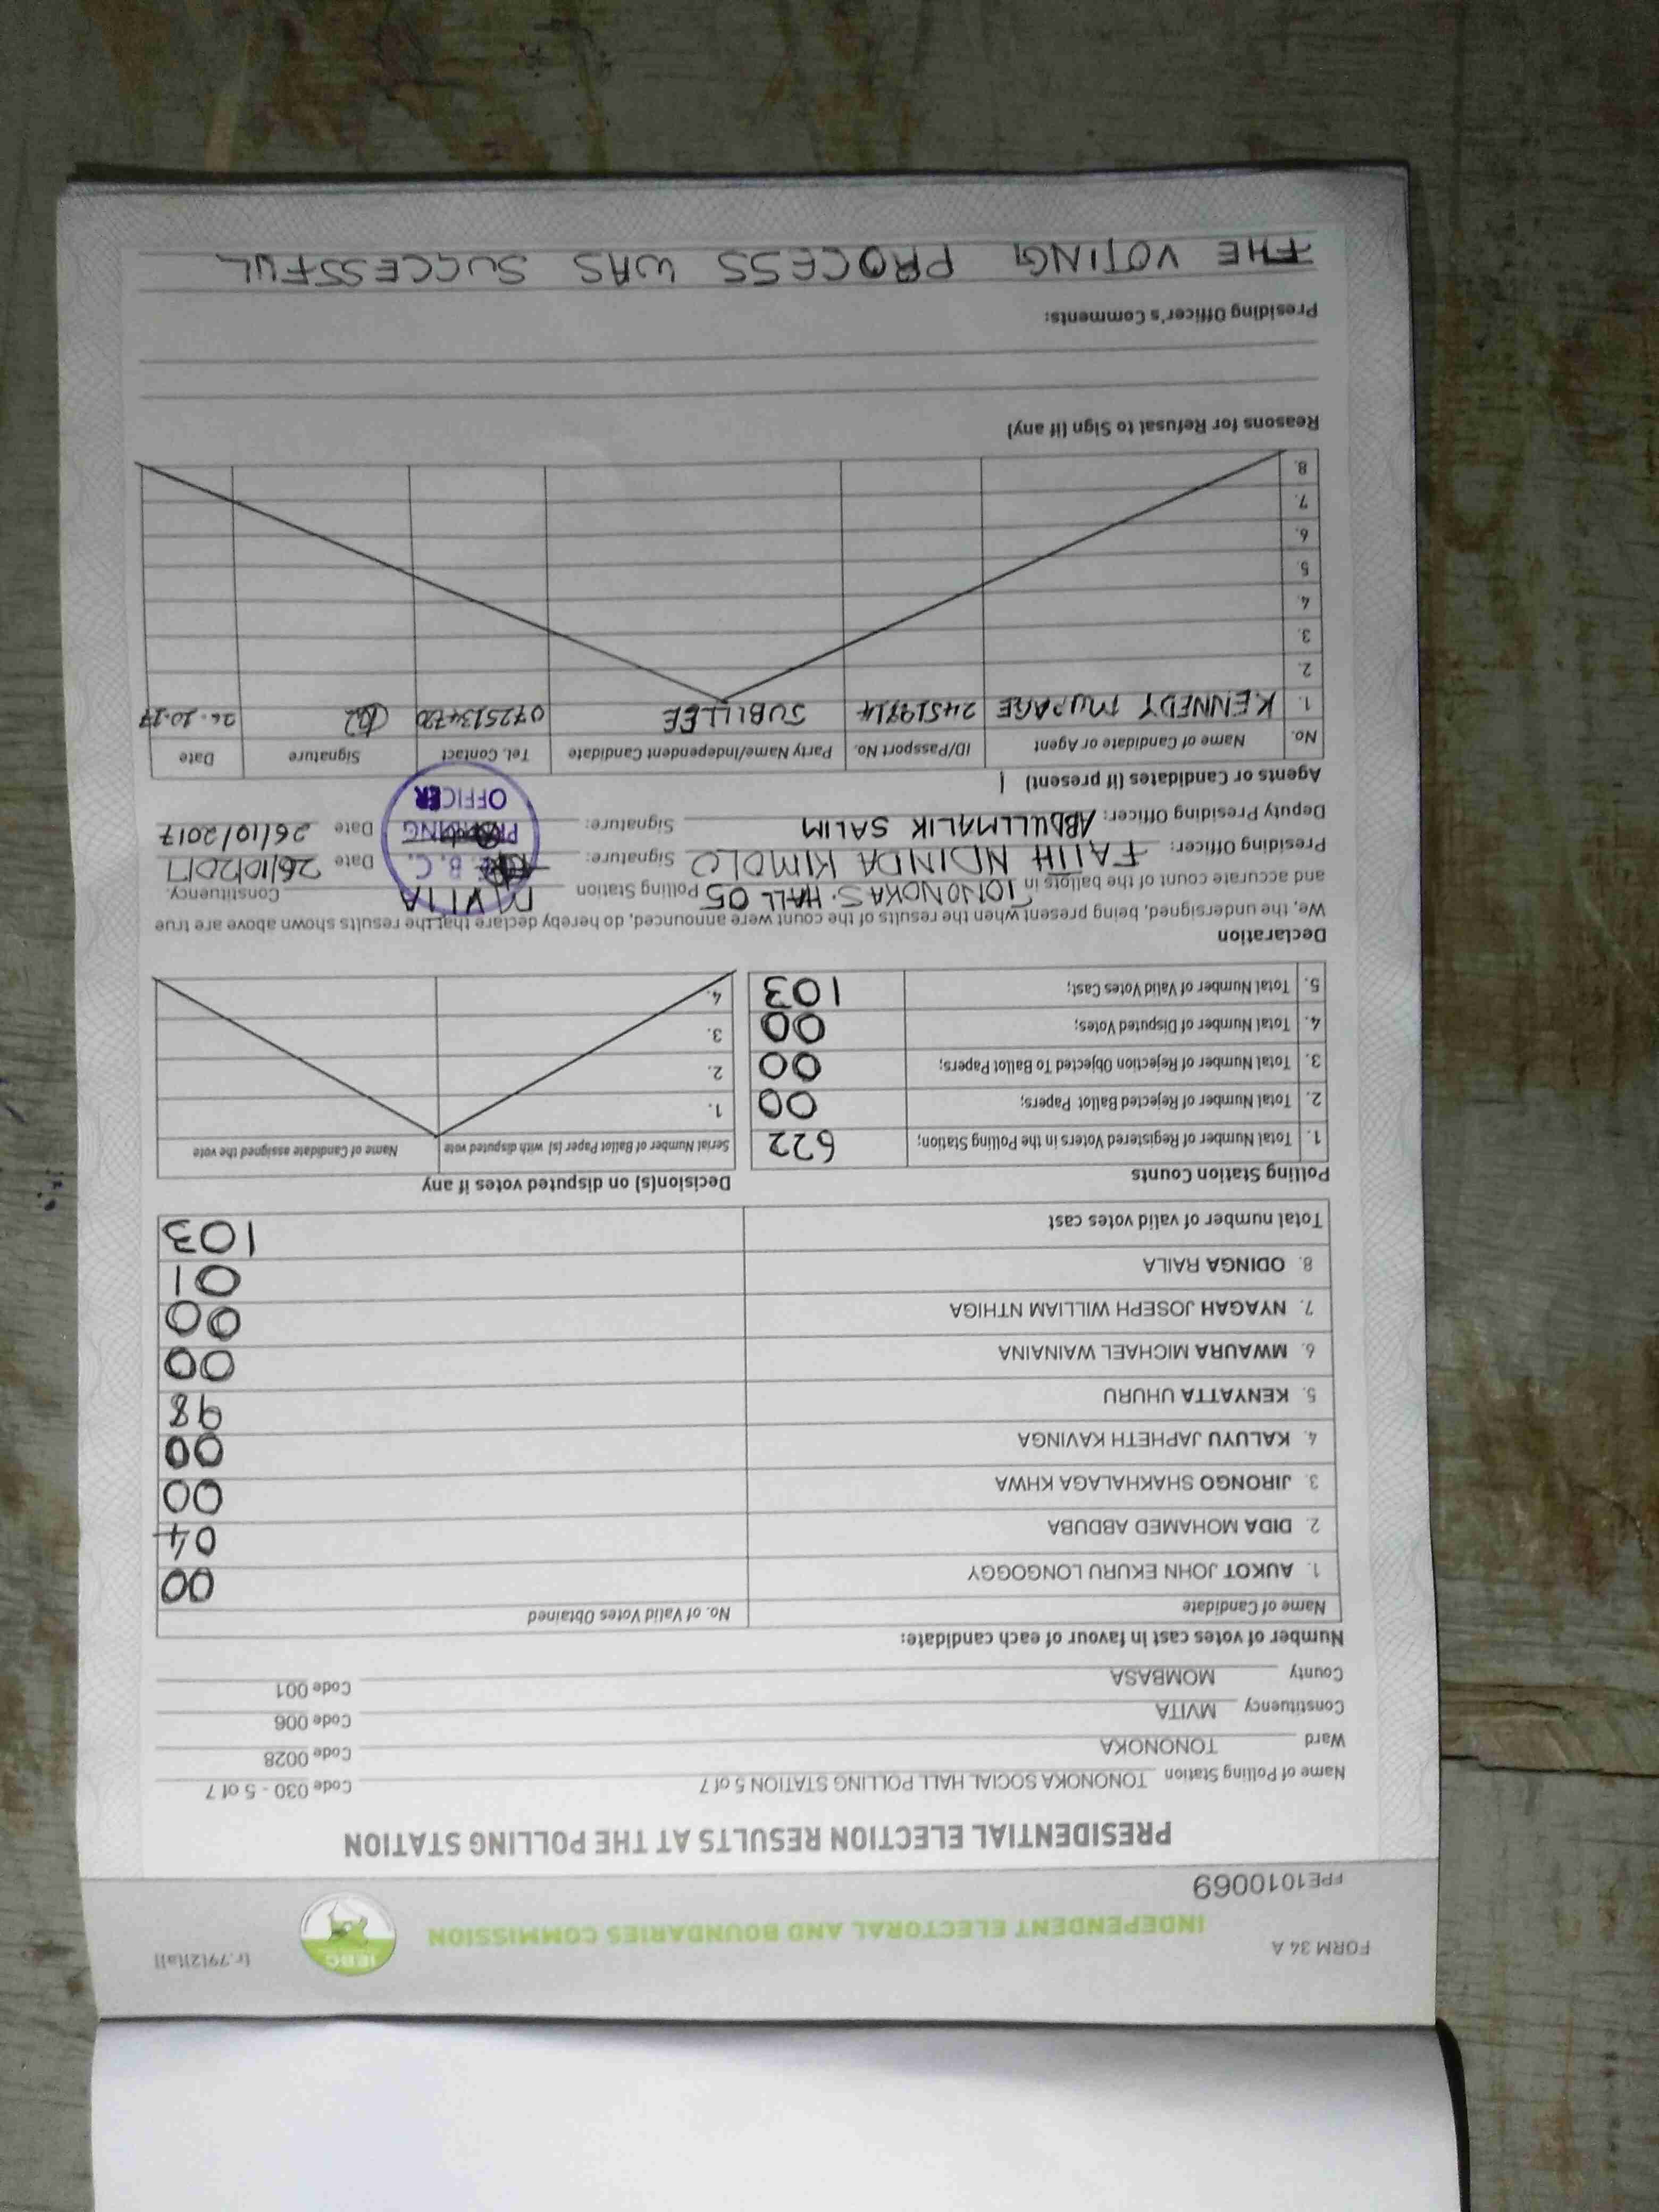 FORM 34 A
[r.79(2)(a)]
INDEPENDENT ELECTORAL AND BOUNDARIES COMMISSION
IEBC
FPE1010069
PRESIDENTIAL ELECTION RESULTS AT THE POLLING STATION
Name of Polling Station TONONOKA SOCIAL HALL POLLING STATION 5 of 7 Code 030 - 5 of 7
Ward TONONOKA Code 0028
Constituency MVITA Code 006
County MOMBASA Code 001
Number of votes cast in favour of each candidate:
Name of Candidate No. of Valid Votes Obtained
1. AUKOT JOHN EKURU LONGOGGY 00
2. DIDA MOHAMED ABDUBA 04
3. JIRONGO SHAKHALAGA KHWA 00
4. KALUYU JAPHETH KAVINGA 00
5. KENYATTA UHURU 98
6. MWAURA MICHAEL WAINAINA 00
7. NYAGAH JOSEPH WILLIAM NTHIGA 00
8. ODINGA RAILA 01
Total number of valid votes cast 103
Polling Station Counts
1. Total Number of Registered Voters in the Polling Station; 622
2. Total Number of Rejected Ballot Papers; 00
3. Total Number of Rejection Objected To Ballot Papers; 00
4. Total Number of Disputed Votes; 00
5. Total Number of Valid Votes Cast; 103
Decision(s) on disputed votes if any
Serial Number of Ballot Paper (s) with disputed vote Name of Candidate assigned the vote
1.
2.
3.
4.
Declaration
We, the undersigned, being present when the results of the count were announced, do hereby declare that the results shown above are true
and accurate count of the ballots in TONONOKA S. HALL 05 Polling Station MVITA Constituency.
Presiding Officer: FAITH NDINDA KIMOLO Signature: Date 26/10/2017
Deputy Presiding Officer: ABDULLMALIK SALIM Signature: Date 26/10/2017
PRESIDING
OFFICER
Agents or Candidates (if present)
No. Name of Candidate or Agent ID/Passport No. Party Name/Independent Candidate Tel. Contact Signature Date
1. KENNEDY JUBILLEE 26.10.17
2.
3.
4.
5.
6.
7.
8.
Reasons for Refusal to Sign (if any)
Presiding Officer's Comments:
THE VOTING PROCESS WAS SUCCESSFUL